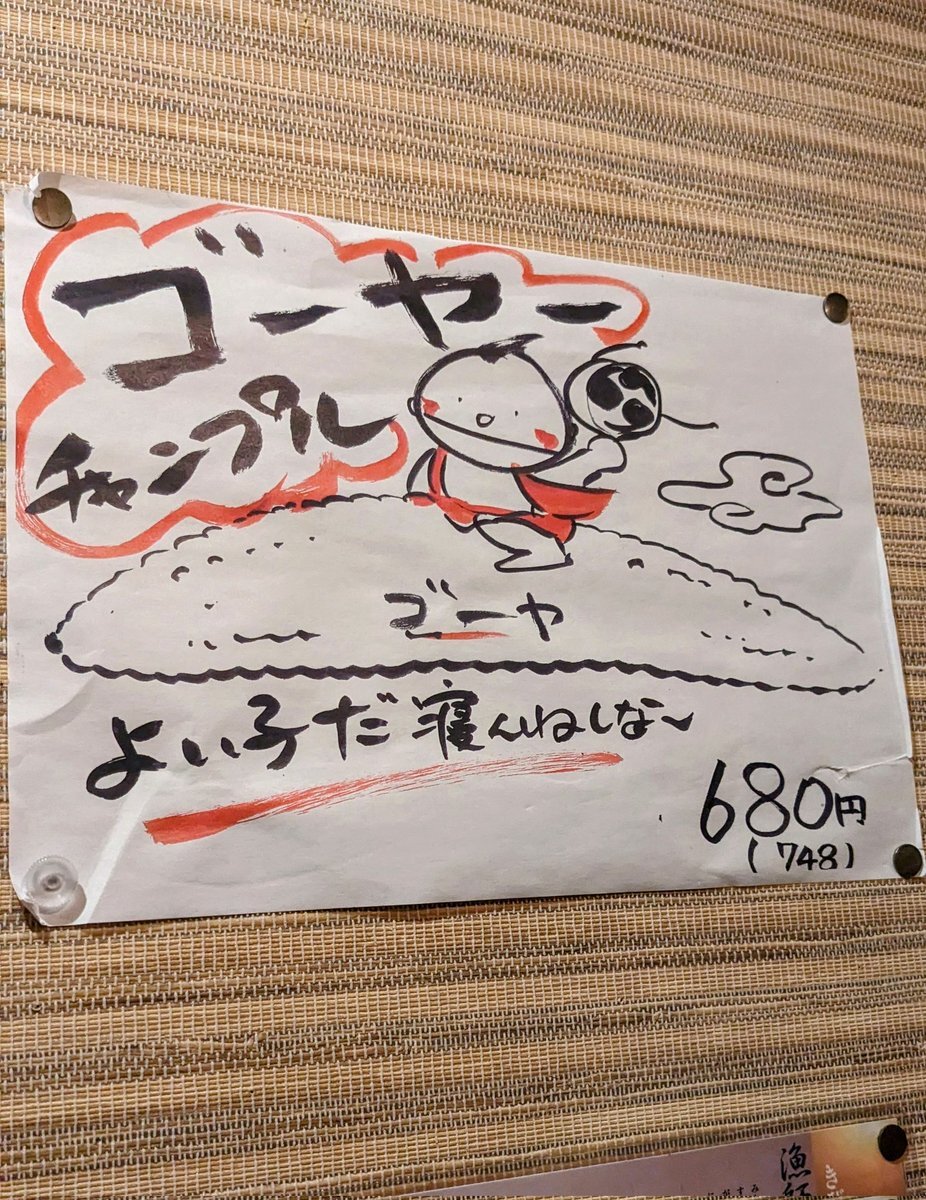 ゴーヤー
チャンプル
ゴーヤ
よい子だ寝んねしな〜
680円
(748)
漁